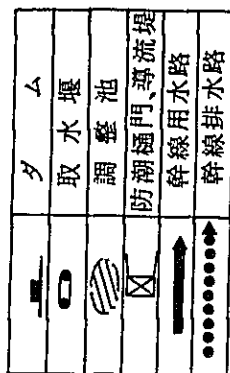 ダム
取水堰
調整池
防潮樋門、導流堤
幹線用水路
幹線排水路